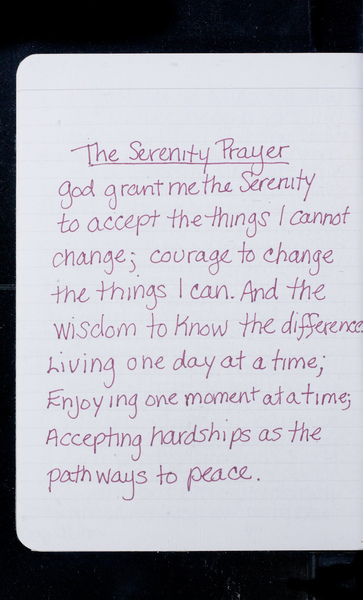 The Serenity Prayer
god grant me the Serenity
to accept the things I cannot
change; courage to change
the things I can. And the
wisdom to Know the difference
Living one day at a time;
Enjoying one moment at a time;
Accepting hardships as the
pathways to peace.